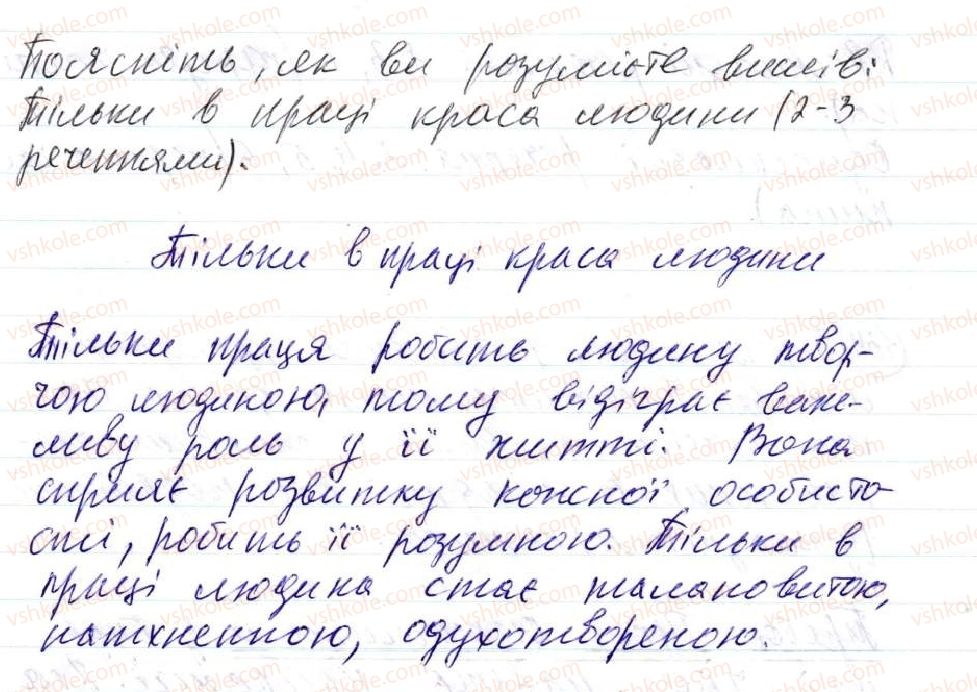 Поясніть, як ви розумієте вислів:
Тільки в праці краса людини (2-3
реченнями).
Тільки в праці краса людини
Тільки праця робить людину твор-
чою людиною, тому відіграє важ-
ливу роль у її житті. Вона
сприяє розвитку кожної особисто-
сті, робить її розумною. Тільки в
праці людина стає талановитою,
натхненною, одухотвореною.